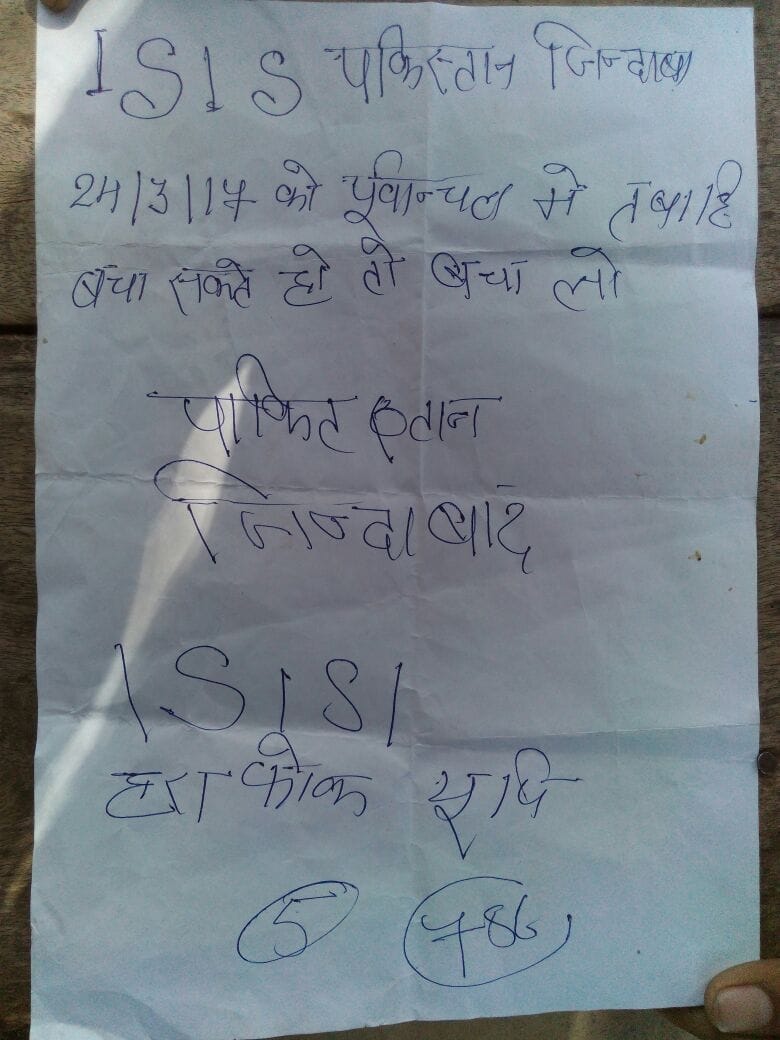 ISIS पकिस्तान जिन्दाबा
24/3/17 को पूर्वान्चल मे तबाहि
बचा सकते हो तो बचा लो
पाकिट इतान
जिन्दाबाद
ISISI
5 786